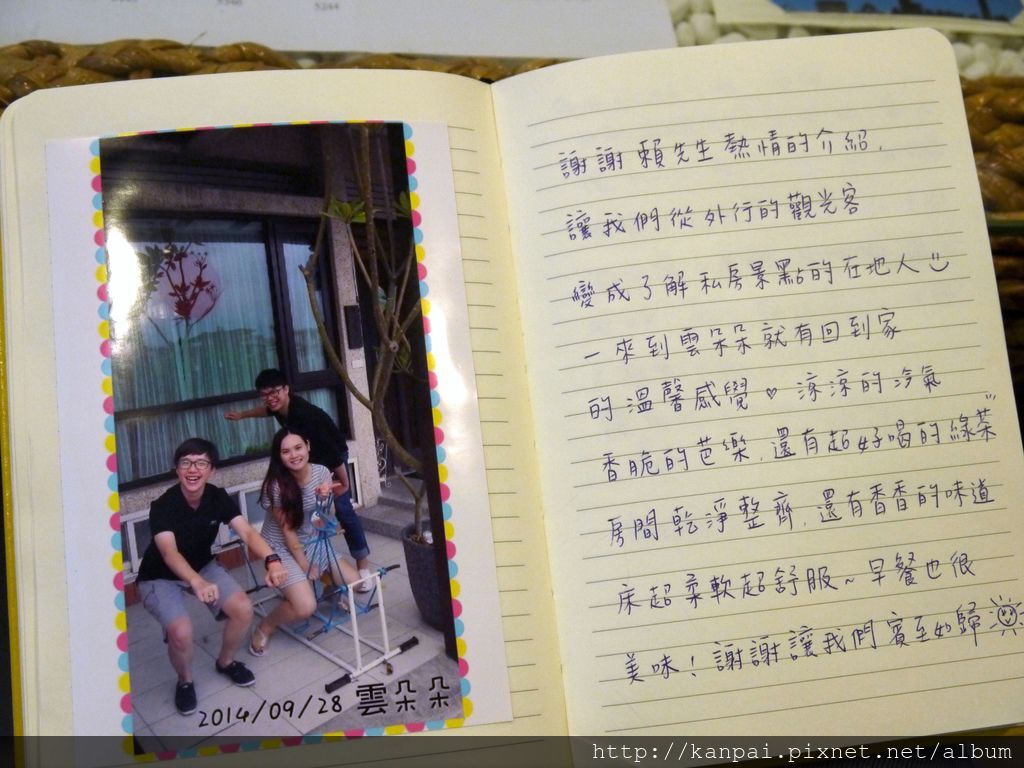 5244
2014/09/28 雲朵朵
謝謝賴先生熱情的介紹,
讓我們從外行的觀光客
變成了解私房景點的在地人
一來到雲朵朵就有回到家
的溫馨感覺♥涼涼的冷氣
香脆的芭樂,還有超好喝的綠茶
房間乾淨整齊,還有香香的味道
床超柔軟超舒服~早餐也很
美味!謝謝讓我們賓至如歸
http://kanpai.pixnet.net/album